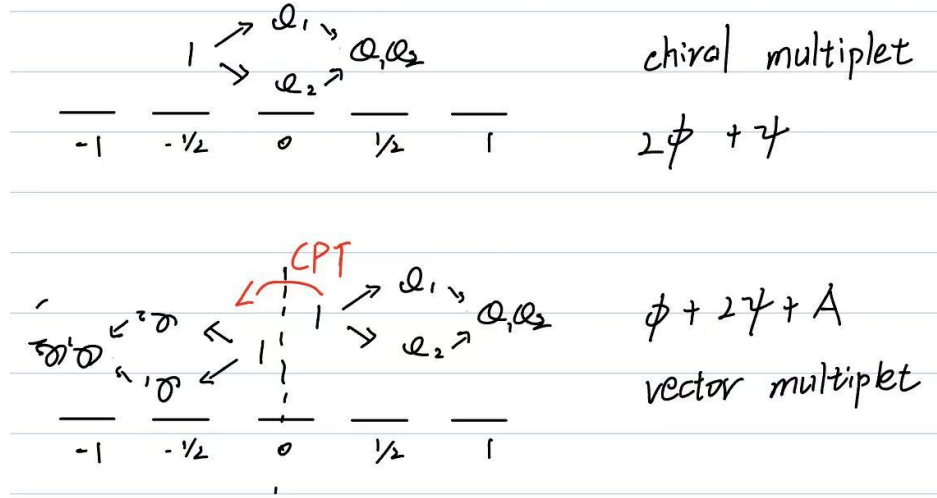 Q₁
1 Q₂ Q₁Q₂
chiral multiplet
-1 -1/2 0 1/2 1
2ϕ + ψ
CPT
Q₁
Q₂ 1 Q₁Q₂
Q₁Q₂ 1 Q₂
Q₁
ϕ + 2ψ + A
vector multiplet
-1 -1/2 0 1/2 1